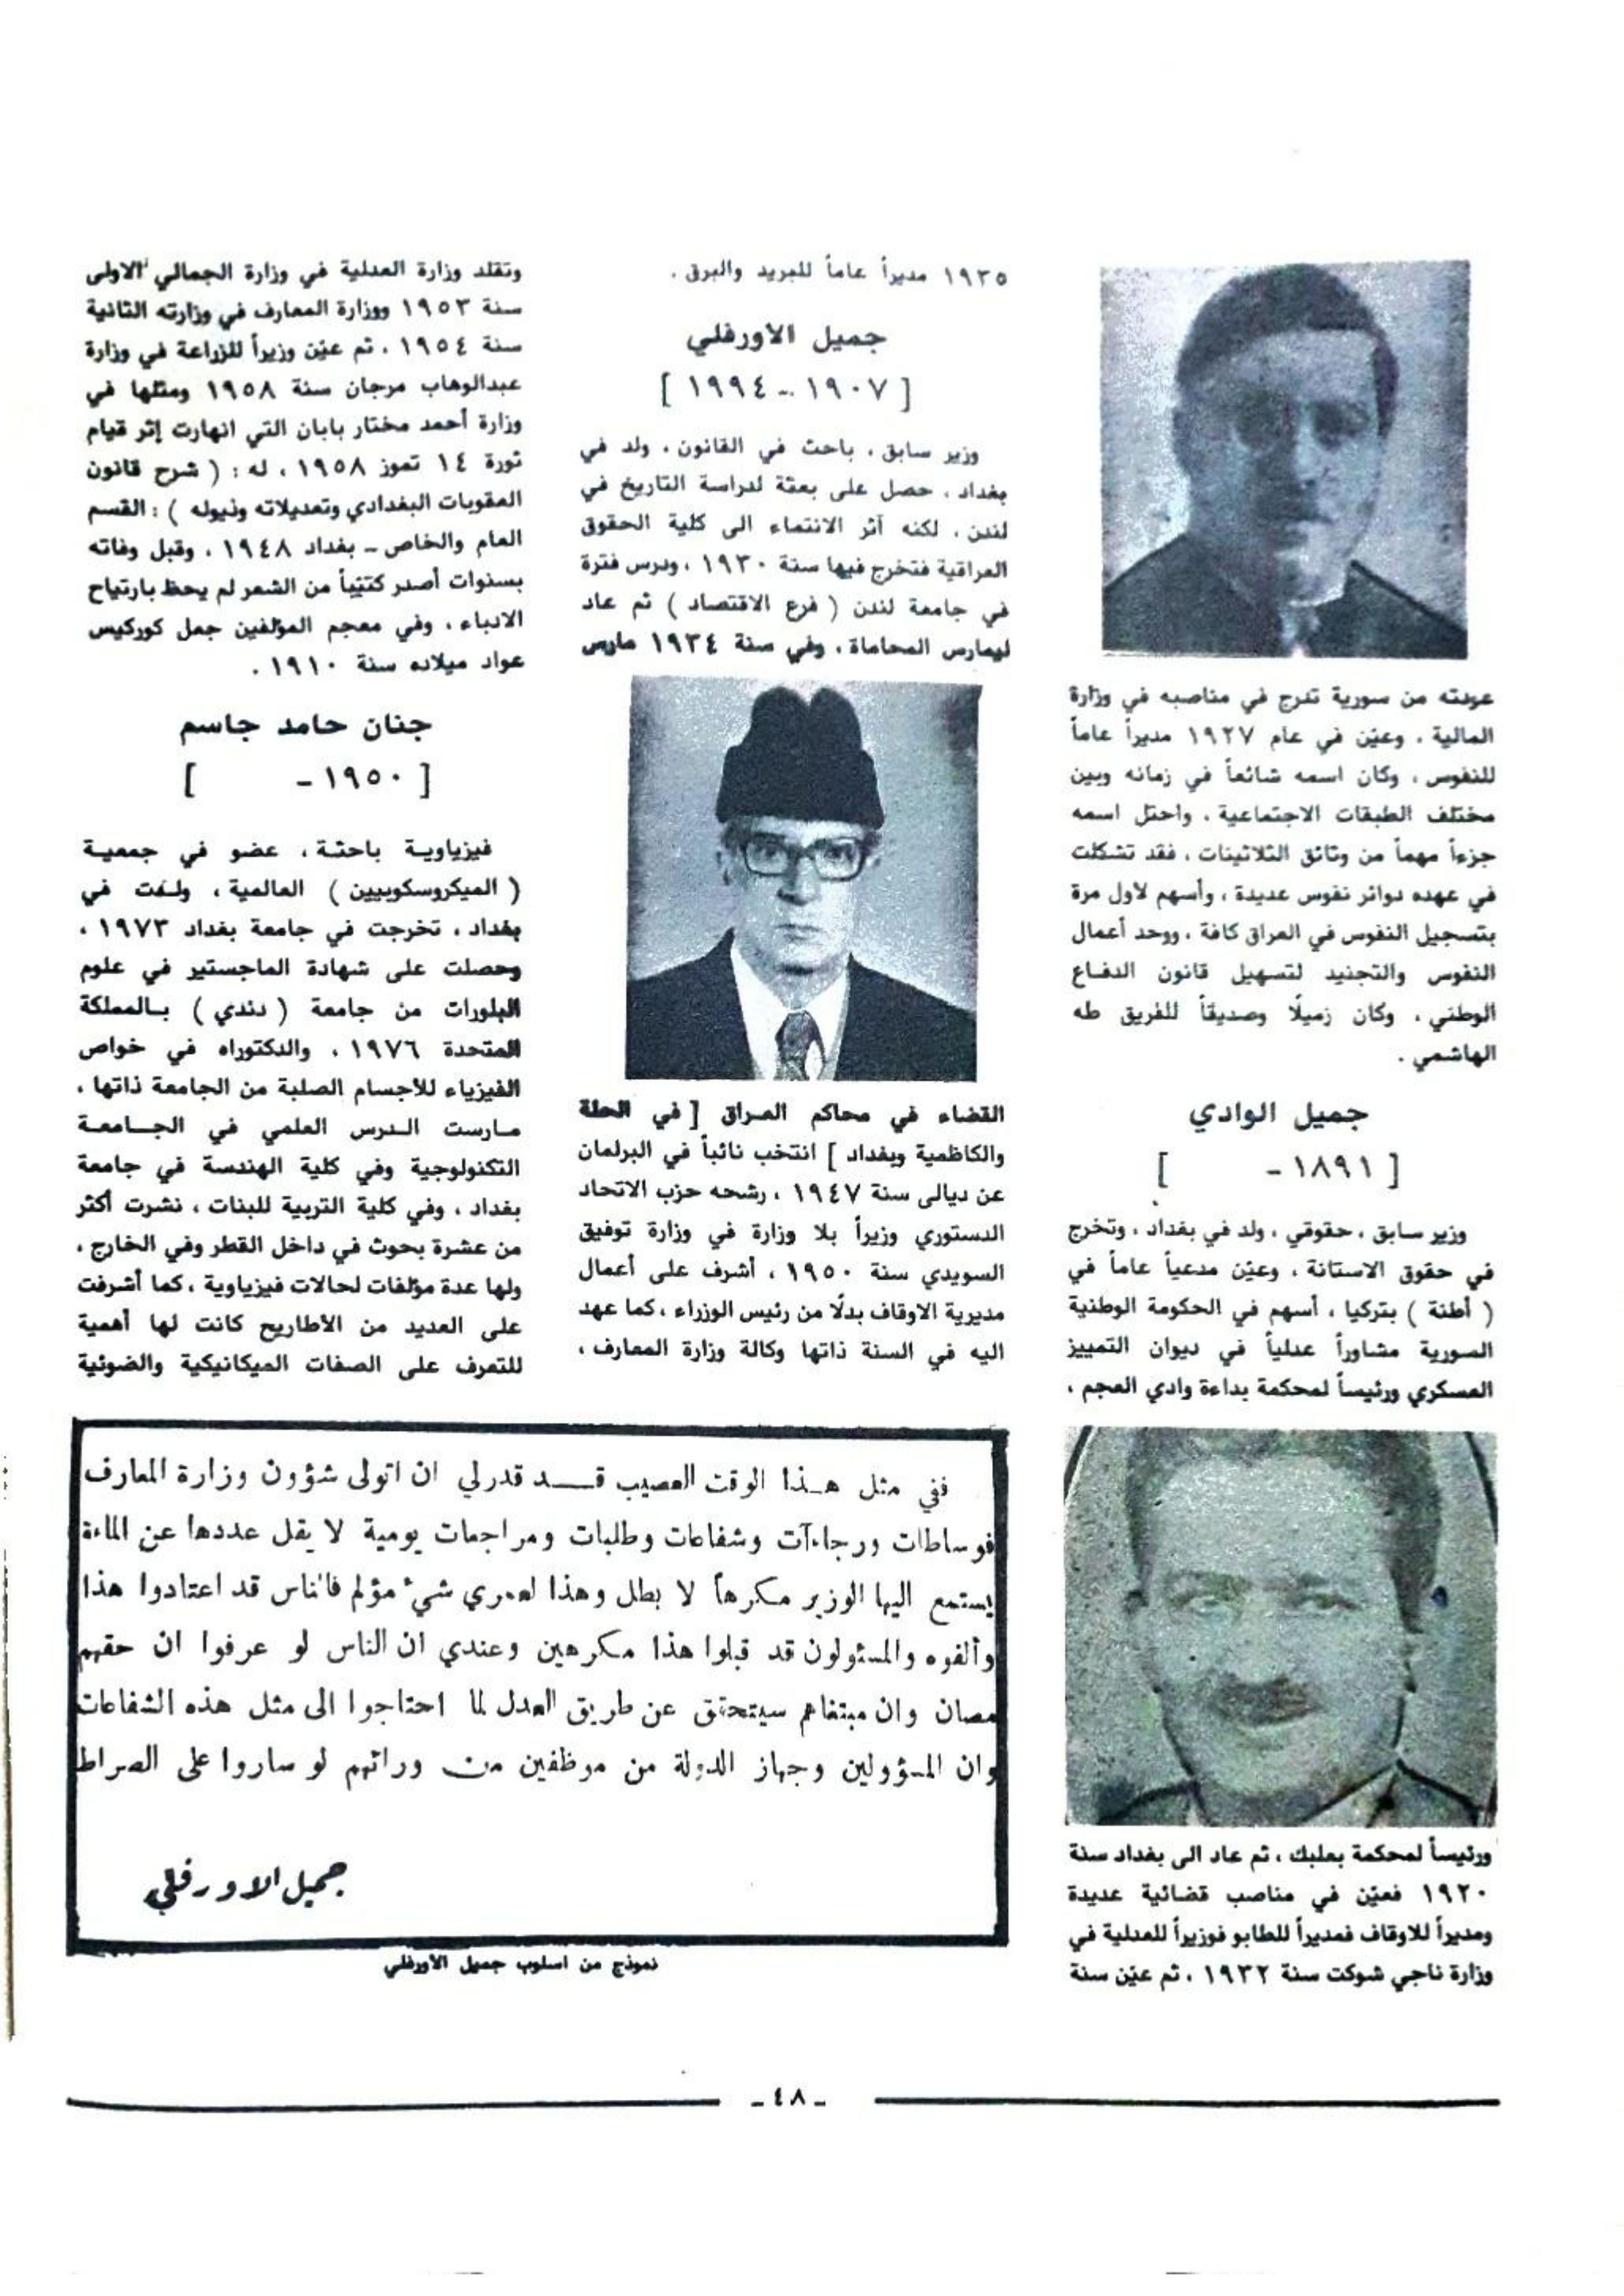 عودته من سورية تدرج في مناصبه في وزارة
المالية ، وعيّن في عام ١٩٢٧ مديراً عاماً
للنفوس ، وكان اسمه شائعاً في زمانه وبين
مختلف الطبقات الاجتماعية ، واحتل اسمه
جزءاً مهماً من وثائق الثلاثينات ، فقد تشكلت
في عهده دوائر نفوس عديدة ، وأسهم لأول مرة
بتسجيل النفوس في العراق كافة ، ووحد أعمال
النفوس والتجنيد لتسهيل قانون الدفاع
الوطني ، وكان زميلًا وصديقاً للفريق طه
الهاشمي .
جميل الوادي
[ ١٨٩١ - ]
وزير سابق ، حقوقي ، ولد في بغداد ، وتخرج
في حقوق الاستانة ، وعيّن مدعياً عاماً في
( أطنة ) بتركيا ، أسهم في الحكومة الوطنية
السورية مشاوراً عدلياً في ديوان التمييز
العسكري ورئيساً لمحكمة بداءة وادي العجم ،
ورئيساً لمحكمة بعلبك ، ثم عاد الى بغداد سنة
١٩٢٠ فعيّن في مناصب قضائية عديدة
ومديراً للاوقاف فمديراً للطابو فوزيراً للعدلية في
وزارة ناجي شوكت سنة ١٩٣٢ ، ثم عيّن سنة
١٩٣٥ مديراً عاماً للبريد والبرق .
جميل الاورفلي
[ ١٩٠٧ - ١٩٩٤ ]
وزير سابق ، باحث في القانون ، ولد في
بغداد ، حصل على بعثة لدراسة التاريخ في
لندن ، لكنه آثر الانتماء الى كلية الحقوق
العراقية فتخرج فيها سنة ١٩٣٠ ، ودرس فترة
في جامعة لندن ( فرع الاقتصاد ) ثم عاد
ليمارس المحاماة ، وفي سنة ١٩٣٤ مارس
القضاء في محاكم العراق [ في الحلة
والكاظمية وبغداد ] انتخب نائباً في البرلمان
عن ديالى سنة ١٩٤٧ ، رشحه حزب الاتحاد
الدستوري وزيراً بلا وزارة في وزارة توفيق
السويدي سنة ١٩٥٠ ، أشرف على أعمال
مديرية الاوقاف بدلًا من رئيس الوزراء ، كما عهد
اليه في السنة ذاتها وكالة وزارة المعارف ،
وتقلد وزارة العدلية في وزارة الجمالي الاولى
سنة ١٩٥٣ ووزارة المعارف في وزارته الثانية
سنة ١٩٥٤ ، ثم عيّن وزيراً للزراعة في وزارة
عبدالوهاب مرجان سنة ١٩٥٨ ومثلها في
وزارة أحمد مختار بابان التي انهارت إثر قيام
ثورة ١٤ تموز ١٩٥٨ ، له : ( شرح قانون
العقوبات البغدادي وتعديلاته وذيوله ) : القسم
العام والخاص - بغداد ١٩٤٨ ، وقبل وفاته
بسنوات أصدر كتيّباً من الشعر لم يحظ بارتياح
الادباء ، وفي معجم المؤلفين جعل كوركيس
عواد ميلاده سنة ١٩١٠ .
جنان حامد جاسم
[ ١٩٥٠ - ]
فيزياوية باحثة ، عضو في جمعية
( الميكروسكوبيين ) العالمية ، ولدت في
بغداد ، تخرجت في جامعة بغداد ١٩٧٣ ،
وحصلت على شهادة الماجستير في علوم
البلورات من جامعة ( دندي ) بالمملكة
المتحدة ١٩٧٦ ، والدكتوراه في خواص
الفيزياء للأجسام الصلبة من الجامعة ذاتها ،
مارست الدرس العلمي في الجامعة
التكنولوجية وفي كلية الهندسة في جامعة
بغداد ، وفي كلية التربية للبنات ، نشرت أكثر
من عشرة بحوث في داخل القطر وفي الخارج ،
ولها عدة مؤلفات لحالات فيزياوية ، كما أشرفت
على العديد من الأطاريح كانت لها أهمية
للتعرف على الصفات الميكانيكية والضوئية
ففي مثل هذا الوقت العصيب قد قدر لي ان اتولى شؤون وزارة المعارف
فوساطات ورجاءآت وشفاعات وطلبات ومراجعات يومية لا يقل عددها عن المائة
يستمع اليها الوزير مكرهاً لا بطل وهذا لعمري شيء مؤلم فالناس قد اعتادوا هذا
وألفوه والمسئولون قد قبلوا هذا مكرهين وعندي ان الناس لو عرفوا ان حقهم
مصان وان مبتغاهم سيتحقق عن طريق العدل لما احتاجوا الى مثل هذه الشفاعات
وان المسؤولين وجهاز الدولة من موظفين من ورائهم لو ساروا على الصراط
جميل الاورفلي
نموذج من اسلوب جميل الأورفلي
- ٤٨ -